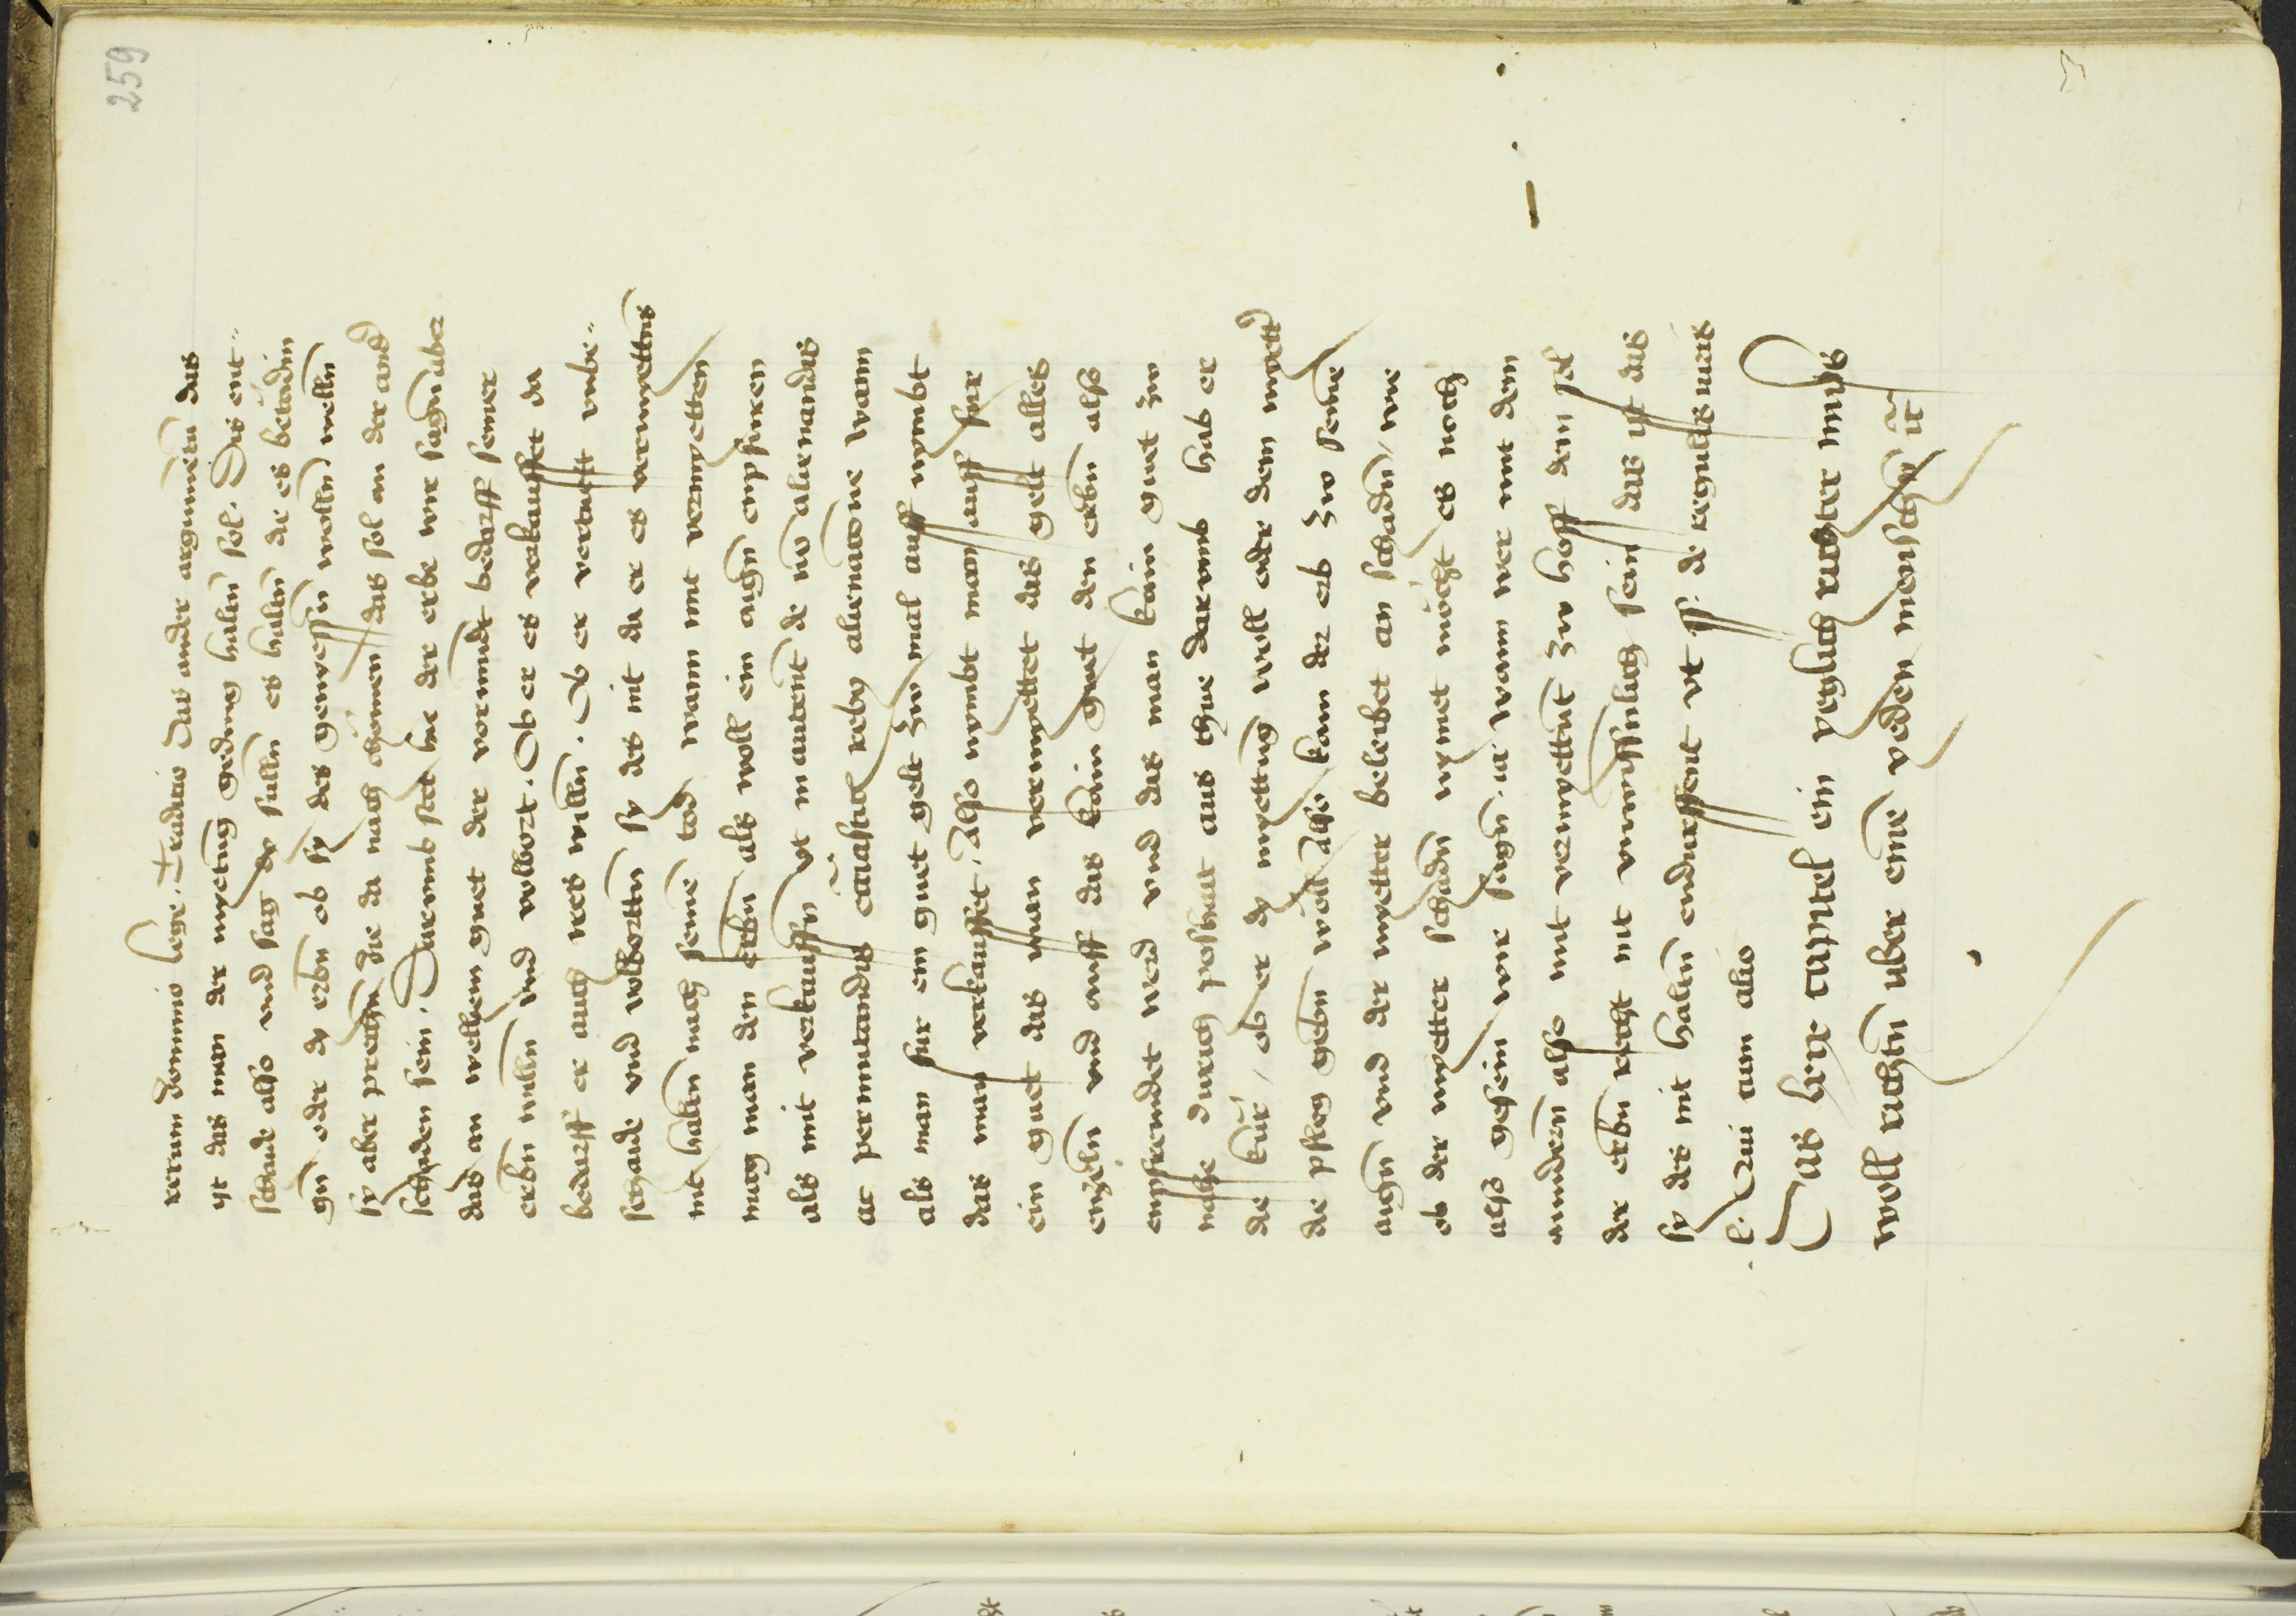 259
rerum dominio lege. Tradicio Das ander argumētū das
yst das man der myetūg gedīng haltn̄ sol. Dis ent⸗
schaide also vnd sag dy sullen es haltn̄ die es betådin
gn̄ oder dy erbn̄ ob sy des genyessn̄ wolln̄ welln̄
sy aber prechn̄ die da nach chömen das sol an der and
schaden sein. Darumb stet hie der erbe wir sagn̄ aber
das an wellem guet der vormūdt bedarff seiner
erbn̄ willn̄ vnd volbort. Ob er es verkauffet da
bedarff er auch ires willn̄. Ob er vertuett vnbe⸗
schaide vnd volborttn̄ sy des nit da er es vermyettns
nit haltn̄ nach seinē tod wann mit vermyetten
mag man den erbn̄ als woll ein aigen enpfüren
als mit verkauffn̄ vt in autent de nō alienandis
ac permutandis eccl̄asticȩ rebȝ alienacōne Wann
als man für ein guet gelt zw mal auff nymbt
das man verkauffet. Also nymbt man auff für
ein guet das man vermyettet das gelt alles
enzeln̄ vnd auff das kain guet den erbn̄ alß
enpfremdet werd vnd das man kain guet zw
nahe durch poshait aus thue darumb hab er
die kür / ob er dy myettūg woll oder dem myett
die pfleg gebn̄ wöll Also kam der erb zw seine
aigen vnd der myetter beleibet an schadn̄ / wie
ob der myetter schadn̄ nymet möcht es noch
alß gesein wir sagn̄. ia wann wer mit dem
anndern̄ also mit vermyettnt zu hoff dem sol
der erbn̄ recht mit vnwissnlich sein das ist das
sy des nit haltn̄ endurffent vt ff. de regulis iuris
l. Qui cum alio
Das lxix capitel ein yeglich richter mus
woll richtn̄ uber einē yeden menschn̄ ꝛc